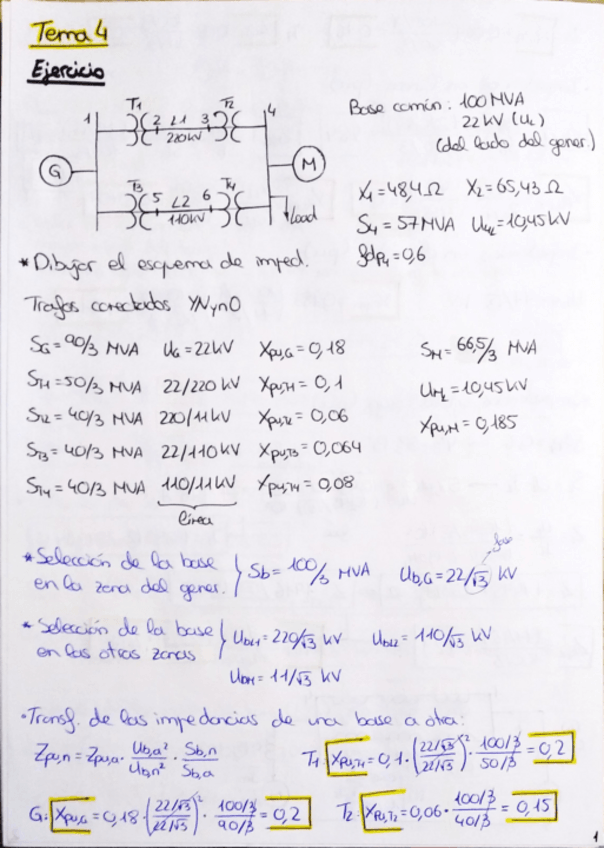 Tema 4
Ejercicio
T1 T2
1 2 L1 3 4
220kV
G M
T3 T4
5 L2 6
110kV
Load
Base común: 100 MVA
22 kV (UL)
(del lado del gener.)
X1 = 48,4 Ω X2 = 65,43 Ω
S4 = 57 MVA U4L = 10,45 kV
fdp4 = 0,6
* Dibujar el esquema de imped.
Trafos conectados YNyn0
SG = 90/3 MVA UG = 22 kV Xpu,G = 0,18
ST1 = 50/3 MVA 22/220 kV Xpu,T1 = 0,1
ST2 = 40/3 MVA 220/11 kV Xpu,T2 = 0,06
ST3 = 40/3 MVA 22/110 kV Xpu,T3 = 0,064
ST4 = 40/3 MVA 110/11 kV Xpu,T4 = 0,08
línea
SM = 66,5/3 MVA
UML = 10,45 kV
Xpu,M = 0,185
* Selección de la base
en la zona del gener. } Sb = 100/3 MVA Ub,G = 22/√3 kV
fase
* Selección de la base
en las otras zonas } UbL1 = 220/√3 kV UbL2 = 110/√3 kV
UbM = 11/√3 kV
· Transf. de las impedancias de una base a otra:
Zpu,n = Zpu,a · Ub,a²/Ub,n² · Sb,n/Sb,a
T1: Xpu,T1 = 0,1 · (22/√3 / 22/√3)² · 100/3 / 50/3 = 0,2
G: Xpu,G = 0,18 · (22/√3 / 22/√3)² · 100/3 / 90/3 = 0,2
T2: Xpu,T2 = 0,06 · 100/3 / 40/3 = 0,15
1